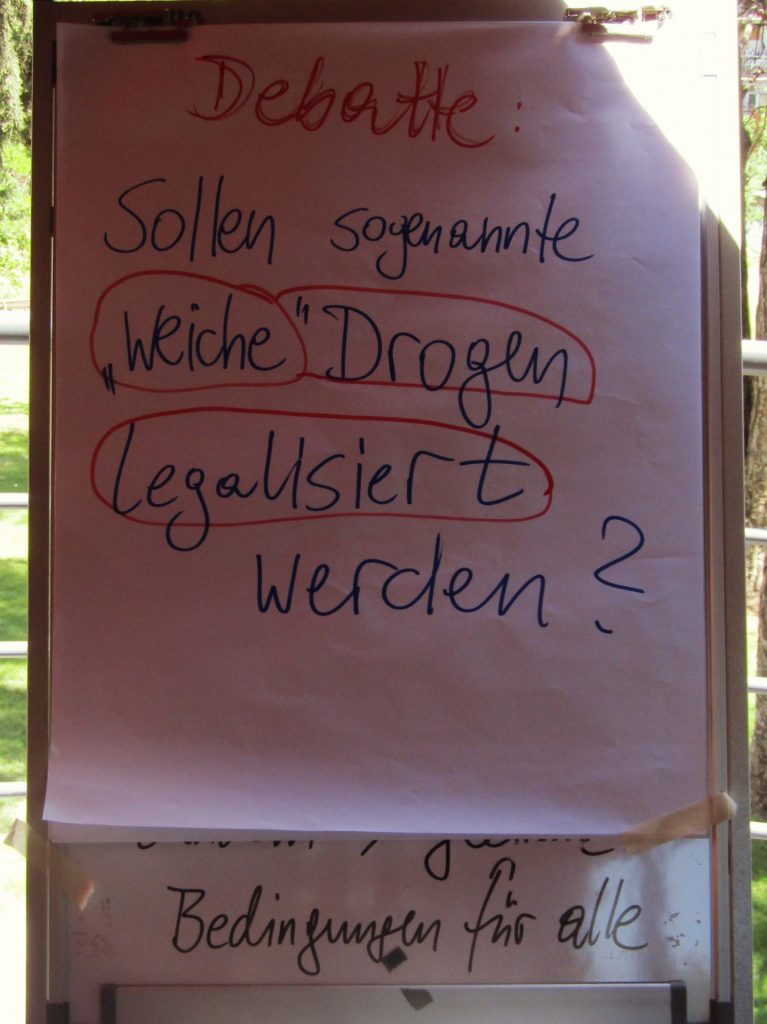 Debatte:
Sollen sogenannte
„weiche" Drogen
legalisiert
werden?
Bedingungen für alle